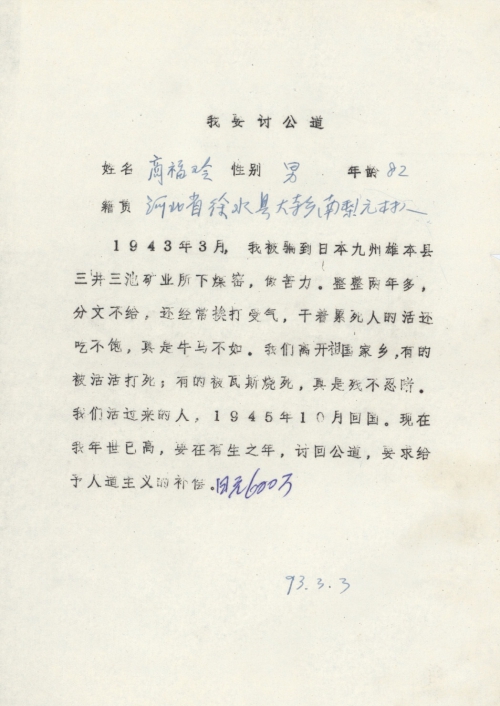 我要讨公道
姓名 高福玲 性别 男 年龄 82
籍贯 河北省徐水县大寺乡南梨元村人
1943年3月，我被骗到日本九州雄本县
三井三池矿业所下煤窑，做苦力。整整两年多，
分文不给，还经常挨打受气，干着累死人的活还
吃不饱，真是牛马不如。我们离开祖国家乡，有的
被活活打死；有的被瓦斯烧死，真是残不忍睹。
我们活过来的人，1945年10月回国。现在
我年世已高，要在有生之年，讨回公道，要求给
予人道主义的补偿。日元600万
93.3.3